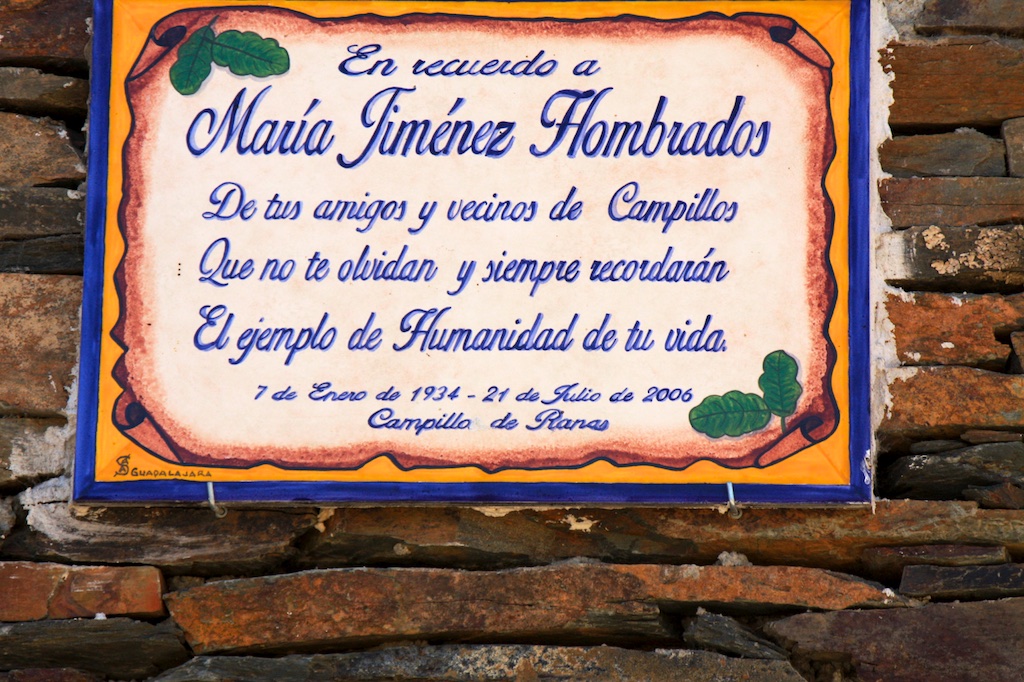 En recuerdo a
María Jiménez Hombrados
De tus amigos y vecinos de Campillos
Que no te olvidan y siempre recordarán
El ejemplo de Humanidad de tu vida.
7 de Enero de 1934 - 21 de Julio de 2006
Campillo de Ranas
GUADALAJARA